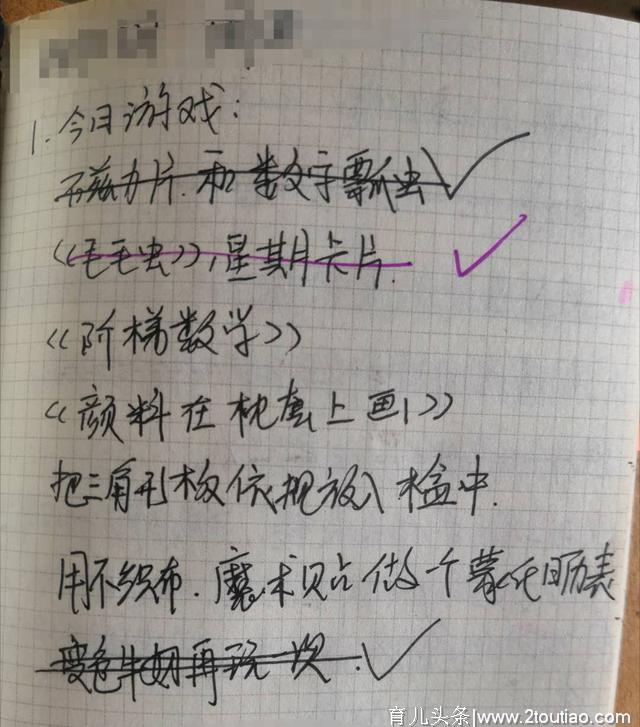 1. 今日游戏：
磁力片.和数字瓢虫
《毛毛虫》,星期卡片.
《阶梯数学》
《颜料在枕套上画》
把三角形板依规放入盒中.
用不织布.魔术贴做个蒙氏日历表
变色牛奶再玩一次.
育儿头条|www.2toutiao.com